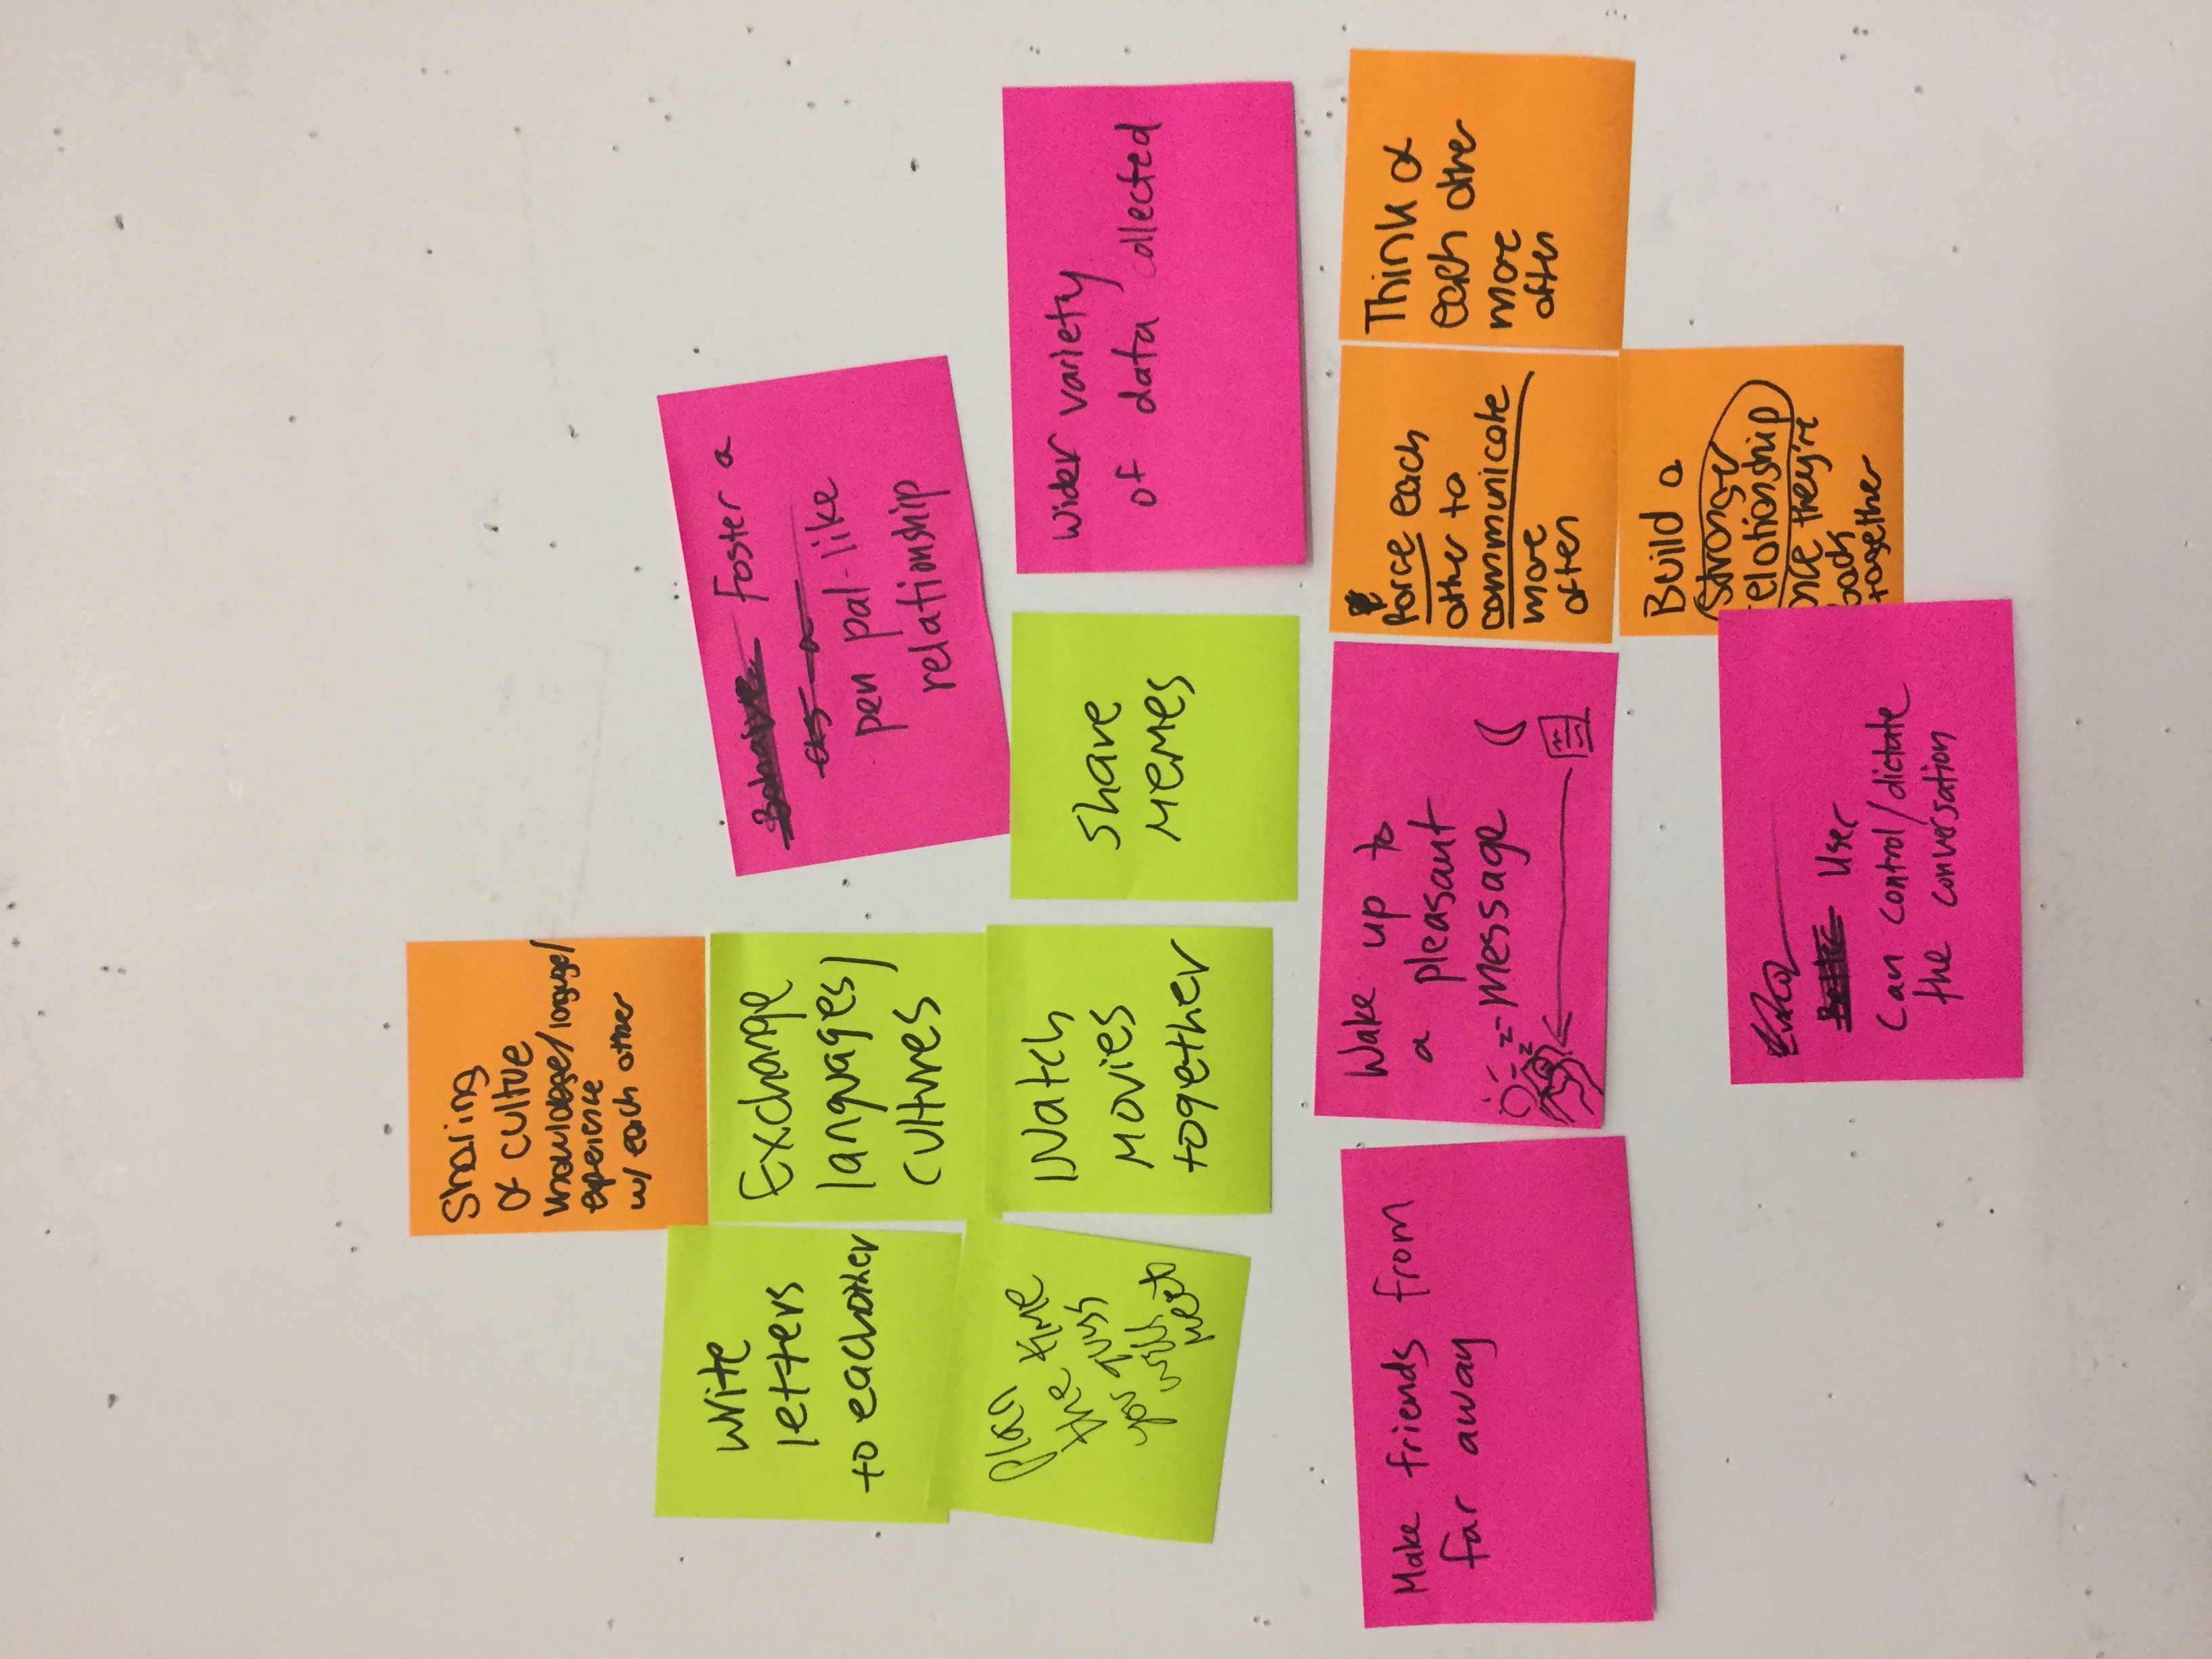 Sharing
of cultue
knowledge/language/
experience
w/ each other
Write
letters
to eachother
Exchange
languages/
cultures
Foster a
as a
pen pal-like
relationship
Plan
the time
you guys
will
meet
Watch
movies
together
Share
memes
Wider variety
of data collected
Make friends from
far away
Wake up to
a pleasant
message
z z z
Force each
other to
communicate
more
often
Think of
each other
more
often
Build a
stronger
relationship
once they're
back
together
Better User
Can control/dictate
the conversation